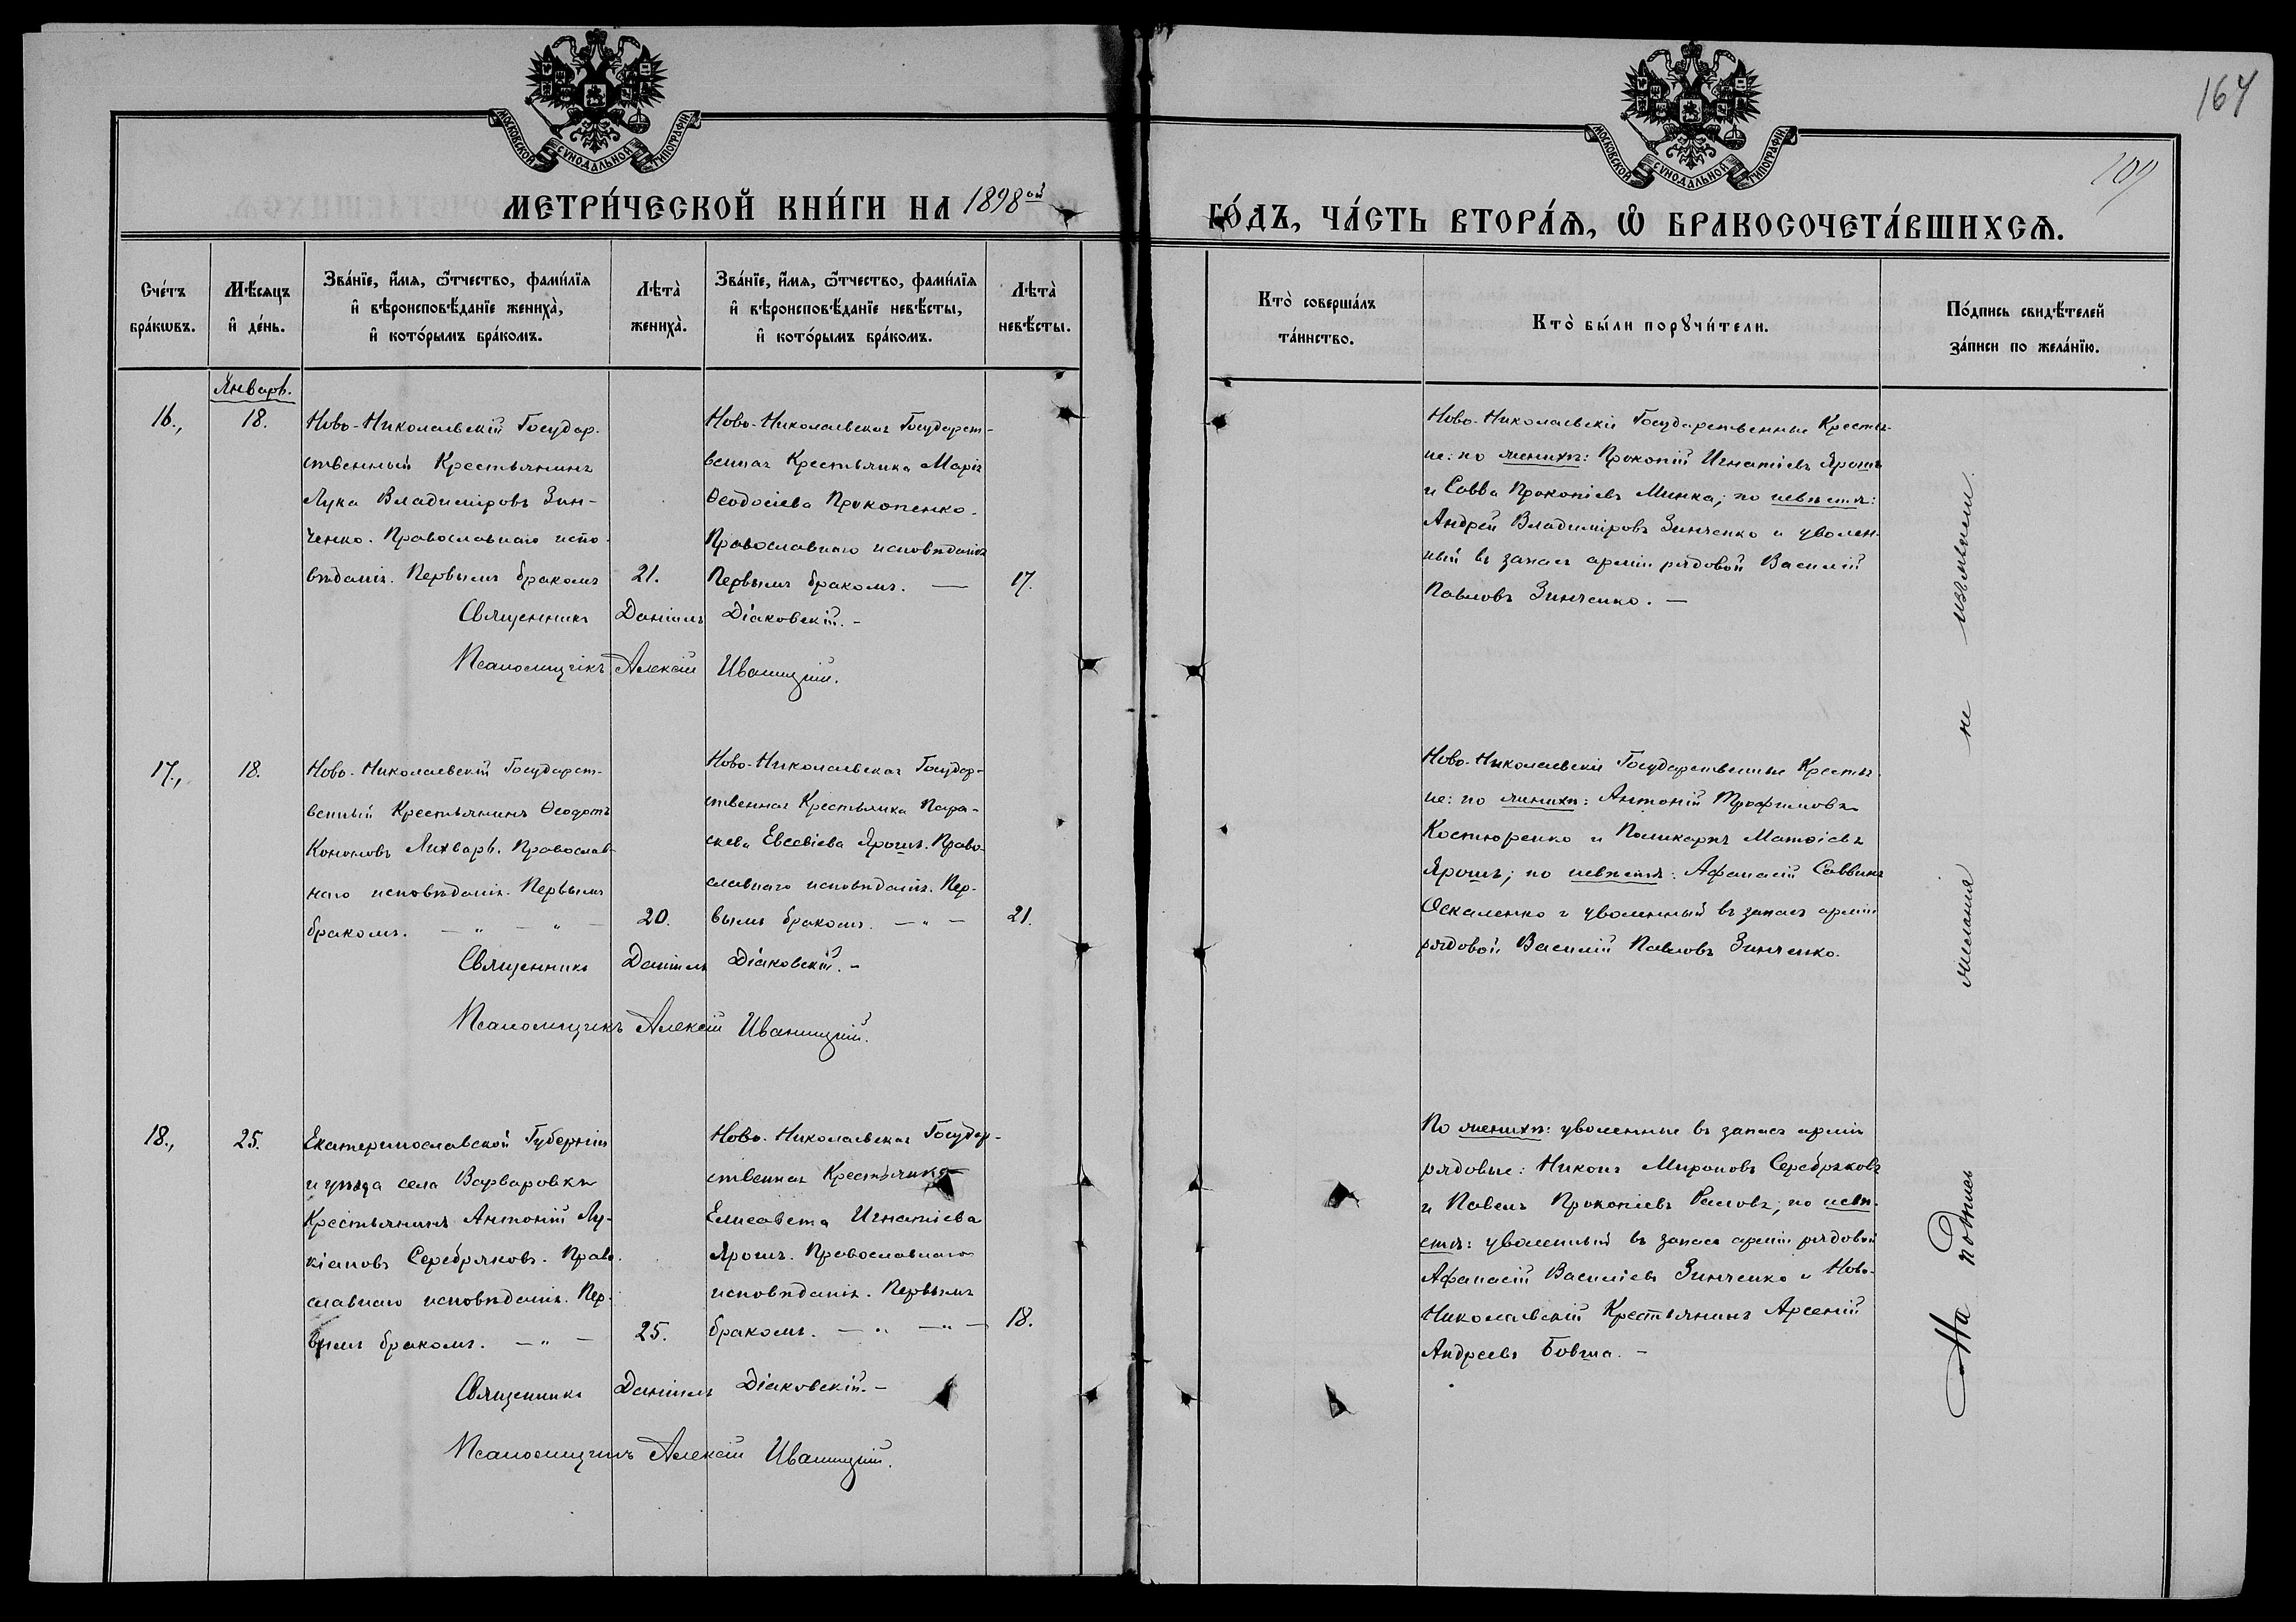 МОСКОВСКОЙ СѴНОДАЛЬНОЙ ТИПОГРАФІИ
МОСКОВСКОЙ СѴНОДАЛЬНОЙ ТИПОГРАФІИ
164
109
МЕТРИ́ЧЕСКОЙ КНИ́ГИ НА 1898ой
ГО́ДЪ, ЧА́СТЬ ВТОРА́Ѧ, Ѽ БРАКОСОЧЕТА́ВШИХСѦ.
Сче́тъ
бра́кѡвъ.
Мѣ́сяцъ
и҆ де́нь.
Зва́нїе, и҆́мѧ, ѻ҆́тчество, фами́лїѧ
и҆ вѣроисповѣ́данїе жениха̀,
и҆ кото́рымъ бра́комъ.
Лѣта̀
жениха̀.
Зва́нїе, и҆́мѧ, ѻ҆́тчество, фами́лїѧ
и҆ вѣроисповѣ́данїе невѣ́сты,
и҆ кото́рымъ бра́комъ.
Лѣта̀
невѣ́сты.
Кто̀ соверша́лъ
та́инство.
Кто̀ бы́ли порꙋчи́тели.
По́дпись свидѣ́телей
за́писи по жела́нїю.
Январь.
16.,
18.
Ново-Николаевскій Государ-
ственный Крестьянинъ
Лука Владиміровъ Зин-
ченко. Православнаго испо-
вѣданія. Первымъ бракомъ
21.
Ново-Николаевская Государст-
венная Крестьянка Марія
Ѳеодосіева Прокопенко.
Православнаго исповѣданія
Первымъ бракомъ. —
17.
Священникъ Даніилъ Діаковскій. -
Псаломщикъ Алексій Иваницкій.
Ново-Николаевскіе Государственные Крестья-
не: по женихѣ: Прокопій Игнатіевъ Ярошъ
и Савва Прокопіевъ Минка; по невѣстѣ:
Андрей Владиміровъ Зинченко и уволен-
ный въ запасъ арміи рядовой Василій
Павловъ Зинченко. —
17.,
18.
Ново-Николаевскій Государст-
венный Крестьянинъ Ѳеодотъ
Кононовъ Лихварь. Православ-
наго исповѣданія. Первымъ
бракомъ. — " — " —
20.
Ново-Николаевская Государ-
ственная Крестьянка Пара-
скева Евсевіева Ярошъ. Право-
славнаго исповѣданія. Пер-
вымъ бракомъ. — " —
21.
Священникъ Даніилъ Діаковскій. -
Псаломщикъ Алексій Иваницкій.
Ново-Николаевскіе Государственные Крестья-
не: по женихѣ: Антоній Трофимовъ
Костюренко и Поликарпъ Матѳіевъ
Ярошъ; по невѣстѣ: Афанасій Саввинъ
Оскаленко и уволенный въ запасъ арміи
рядовой Василій Павловъ Зинченко.
18.,
25.
Екатеринославской Губерніи
и уѣзда села Варваровки
Крестьянинъ Антоній Лу-
кіановъ Серебряковъ. Право-
славнаго исповѣданія. Пер-
вымъ бракомъ. — " —
25.
Ново-Николаевская Государ-
ственная Крестьянка
Елисавета Игнатіева
Ярошъ. Православнаго
исповѣданія. Первымъ
бракомъ. — " — " —
18.
Священникъ Даніилъ Діаковскій. -
Псаломщикъ Алексій Иваницкій.
По женихѣ: уволенные въ запасъ арміи
рядовые: Никонъ Мироновъ Серебряковъ
и Павелъ Прокопіевъ; по невѣ-
стѣ: уволенный въ запасъ арміи рядовой
Афанасій Василіевъ Зинченко и Ново-
Николаевскій Крестьянинъ Арсеній
Андреевъ Бовша. -
На подпись желанія не изъявили.